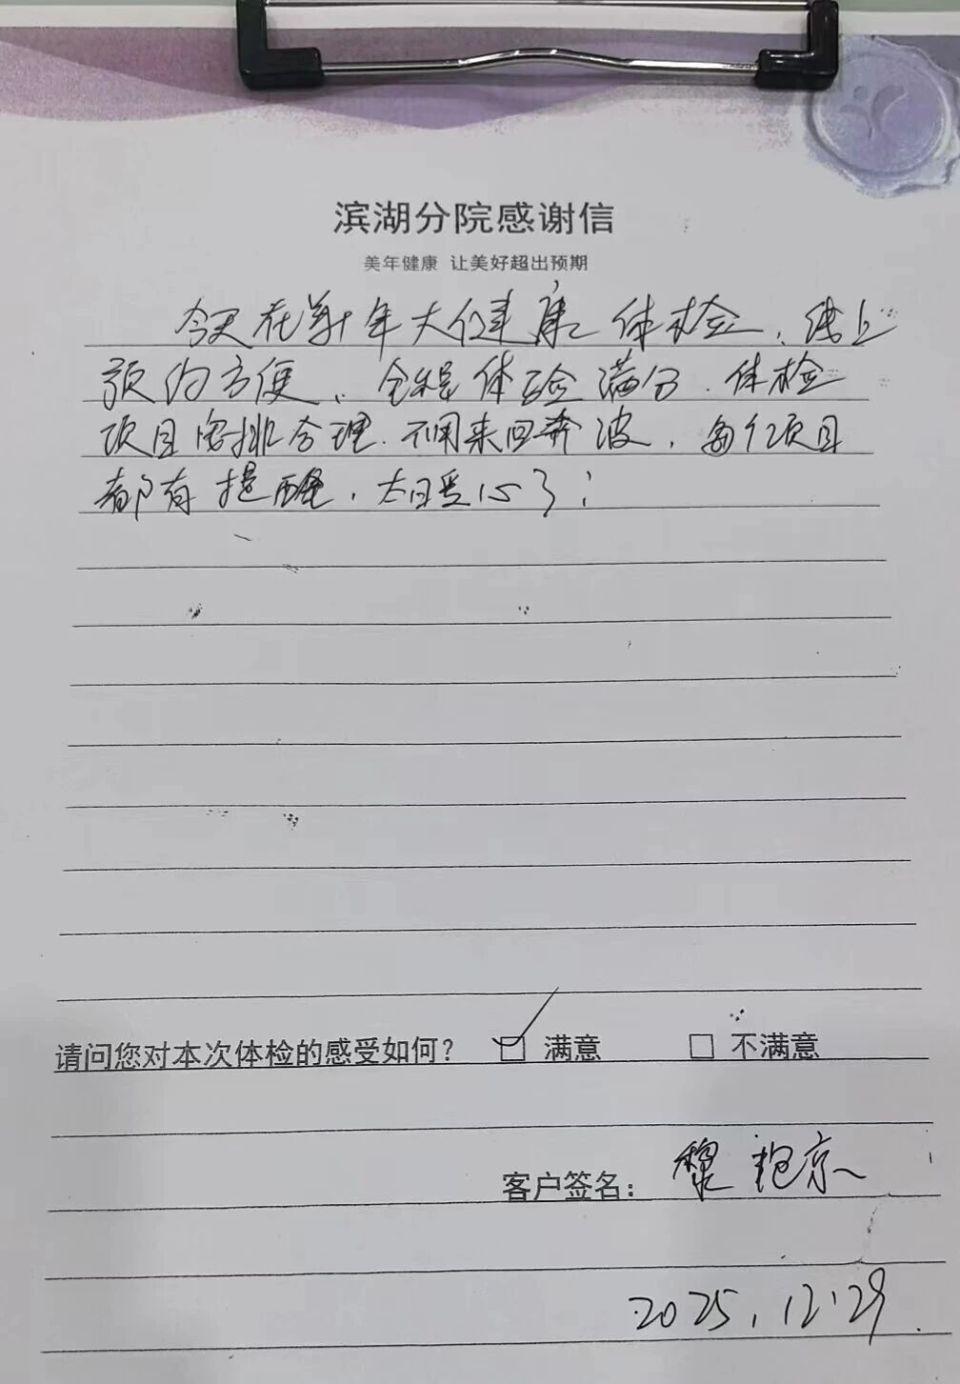 滨湖分院感谢信
美年健康 让美好超出预期
今天在美年大健康体检、线上
预约方便、全程体验满分、体检
项目安排合理、不用来回奔波，每个项目
都有提醒，太暖心了！
请问您对本次体检的感受如何？ ☑ 满意 □ 不满意
客户签名：黎艳京
2025.12.29